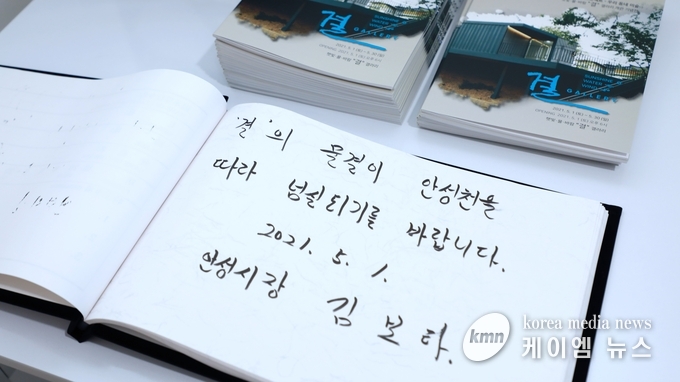 '결'의 물결이 안성천을
따라 넘실되기를 바랍니다.
2021. 5. 1.
안성시장 김보라.
결
GALLERY
결
GALLERY
kmn
korea media news
케이엠 뉴스